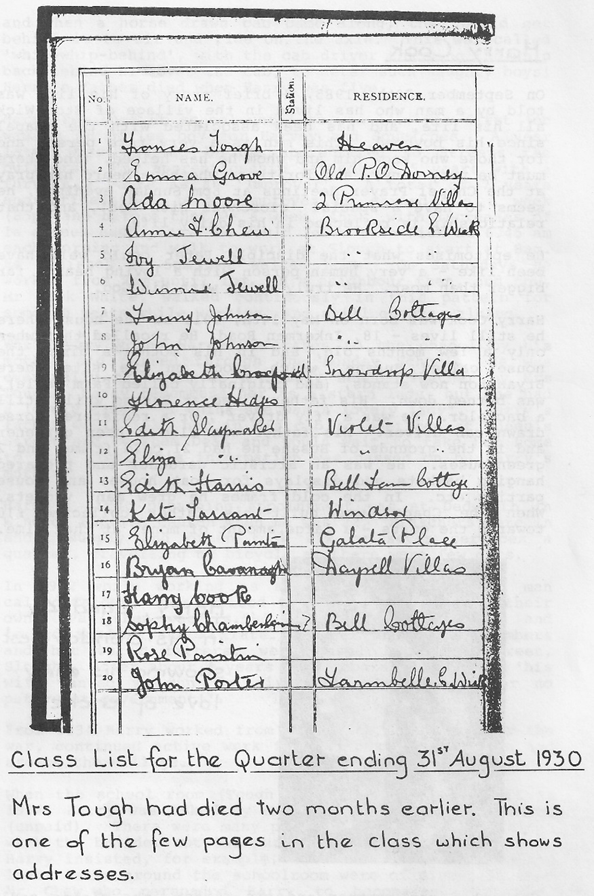 No. NAME. Station. RESIDENCE.
1 Frances Tough Heaven
2 Emma Grove Old P.O. Dorney
3 Ada Moore 2 Primrose Villas
4 Annie F. Chew Brookside E. Wick
5 Ivy Jewell " "
6 Winnie Jewell " "
7 Fanny Johnson Bell Cottages
8 John Johnson " "
9 Elizabeth Snowdrop Villa
10 Florence Hedges
11 Edith Slaymaker Violet Villas
12 Eliza " " "
13 Edith Harris Bell Farm Cottage
14 Kate Tarrant Windsor
15 Elizabeth Galata Place
16 Bryan Cavanagh Villas
17 Harry Cook
18 Sophy Chamberlain? Bell Cottages
19 Rose
20 John Porter E. Wick
Class List for the Quarter ending 31ST August 1930
Mrs Tough had died two months earlier. This is
one of the few pages in the class which shows
addresses.